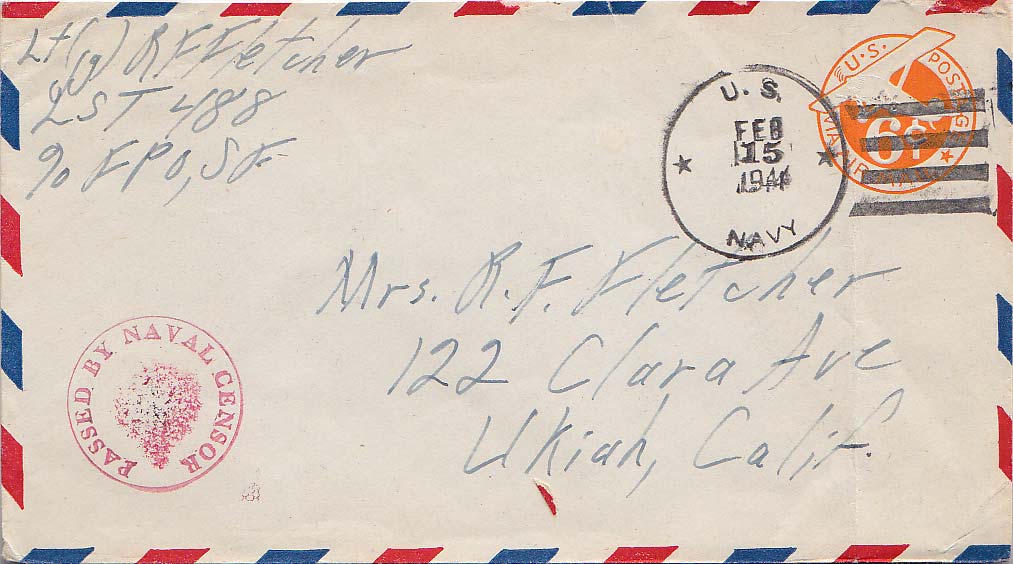 Lt(jg) R F Fletcher
LST 488
% FPO, SF
U. S.
FEB
15
1944
NAVY
U.S. POSTAGE
6¢
VIA AIR MAIL
Mrs. R. F. Fletcher
122 Clara Ave
Ukiah, Calif.
PASSED BY NAVAL CENSOR